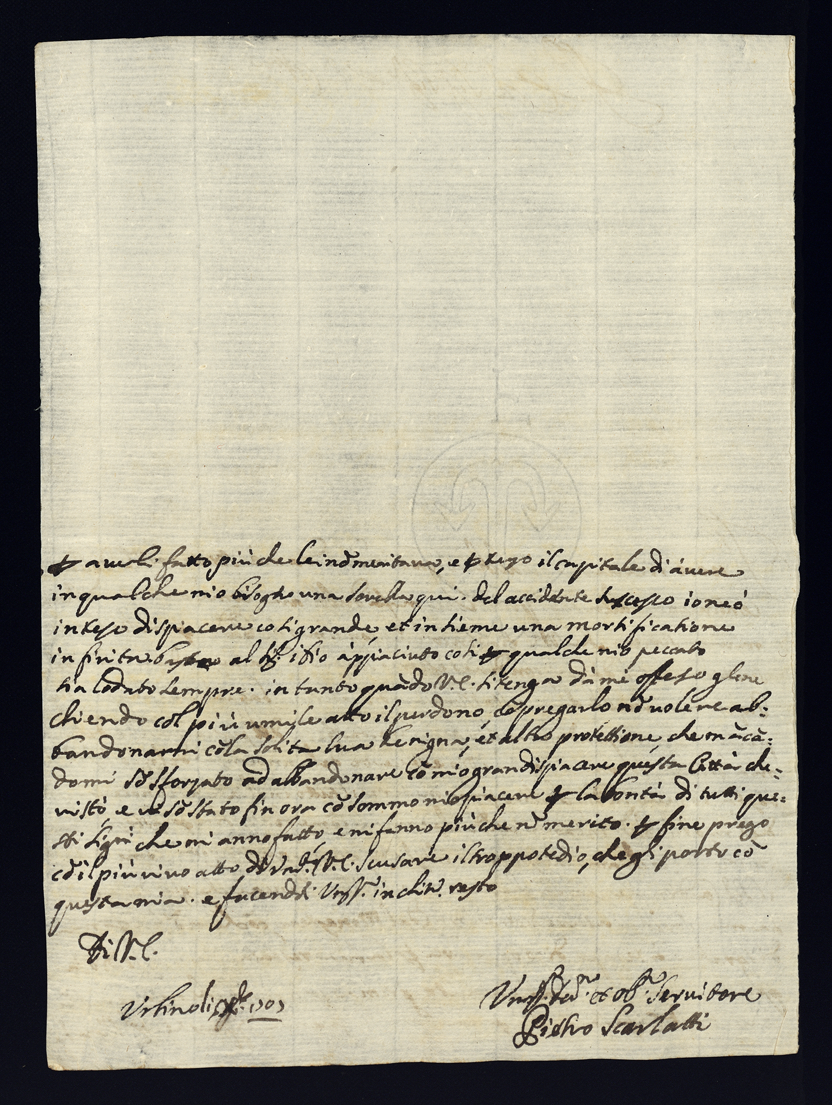 p averli fatto più che le ind meritava, e p tego il capitale di avere
in qualche mio bisogno una sorella qui. del accidente sucesso io ne ò
inteso dispiacere così grande, et insieme una mortificatione
infinita. al Sig. idio à piaciuto così p qualche mio peccato
sia lodato sempre. in tanto quãdo V.E. si tenga dà me offeso gliene
chiendo col più umile atto il perdono, cõ pregarlo nõ volere ab-
bandonarmi cõ la solita sua benigna, et alto protettione, che mãcã-
domi sõ sforzato ad abbandonare cõ mio gran dispiacere questa Città che-
visto, e vi sõ stato fin ora cõ sommo mio piacere p la bontà di tutti que-
sti Sigri che mi anno fatto, e mi fanno più che nõ merito. p fine prego
cõ il più vivo atto di V.E. scusare il troppo tedio, che gli porto cõ
questa mia. e facendoli Umss. inchin. resto
Di V.E.
Urbino li 1707
Umss. Dev. et Obb. Servitore
Pietro Scarlatti